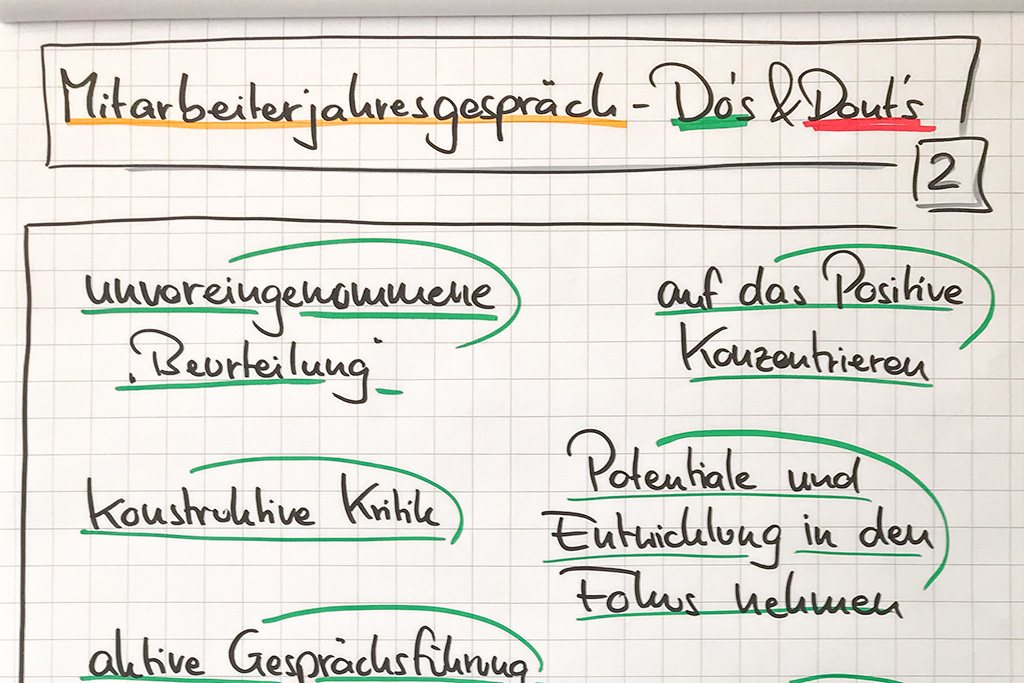 Mitarbeiterjahresgespräch - Do's & Dont's
2
unvoreingenommene
"Beurteilung"
auf das Positive
Konzentrieren
konstruktive Kritik
Potentiale und
Entwicklung in den
Fokus nehmen
aktive Gesprächsführung